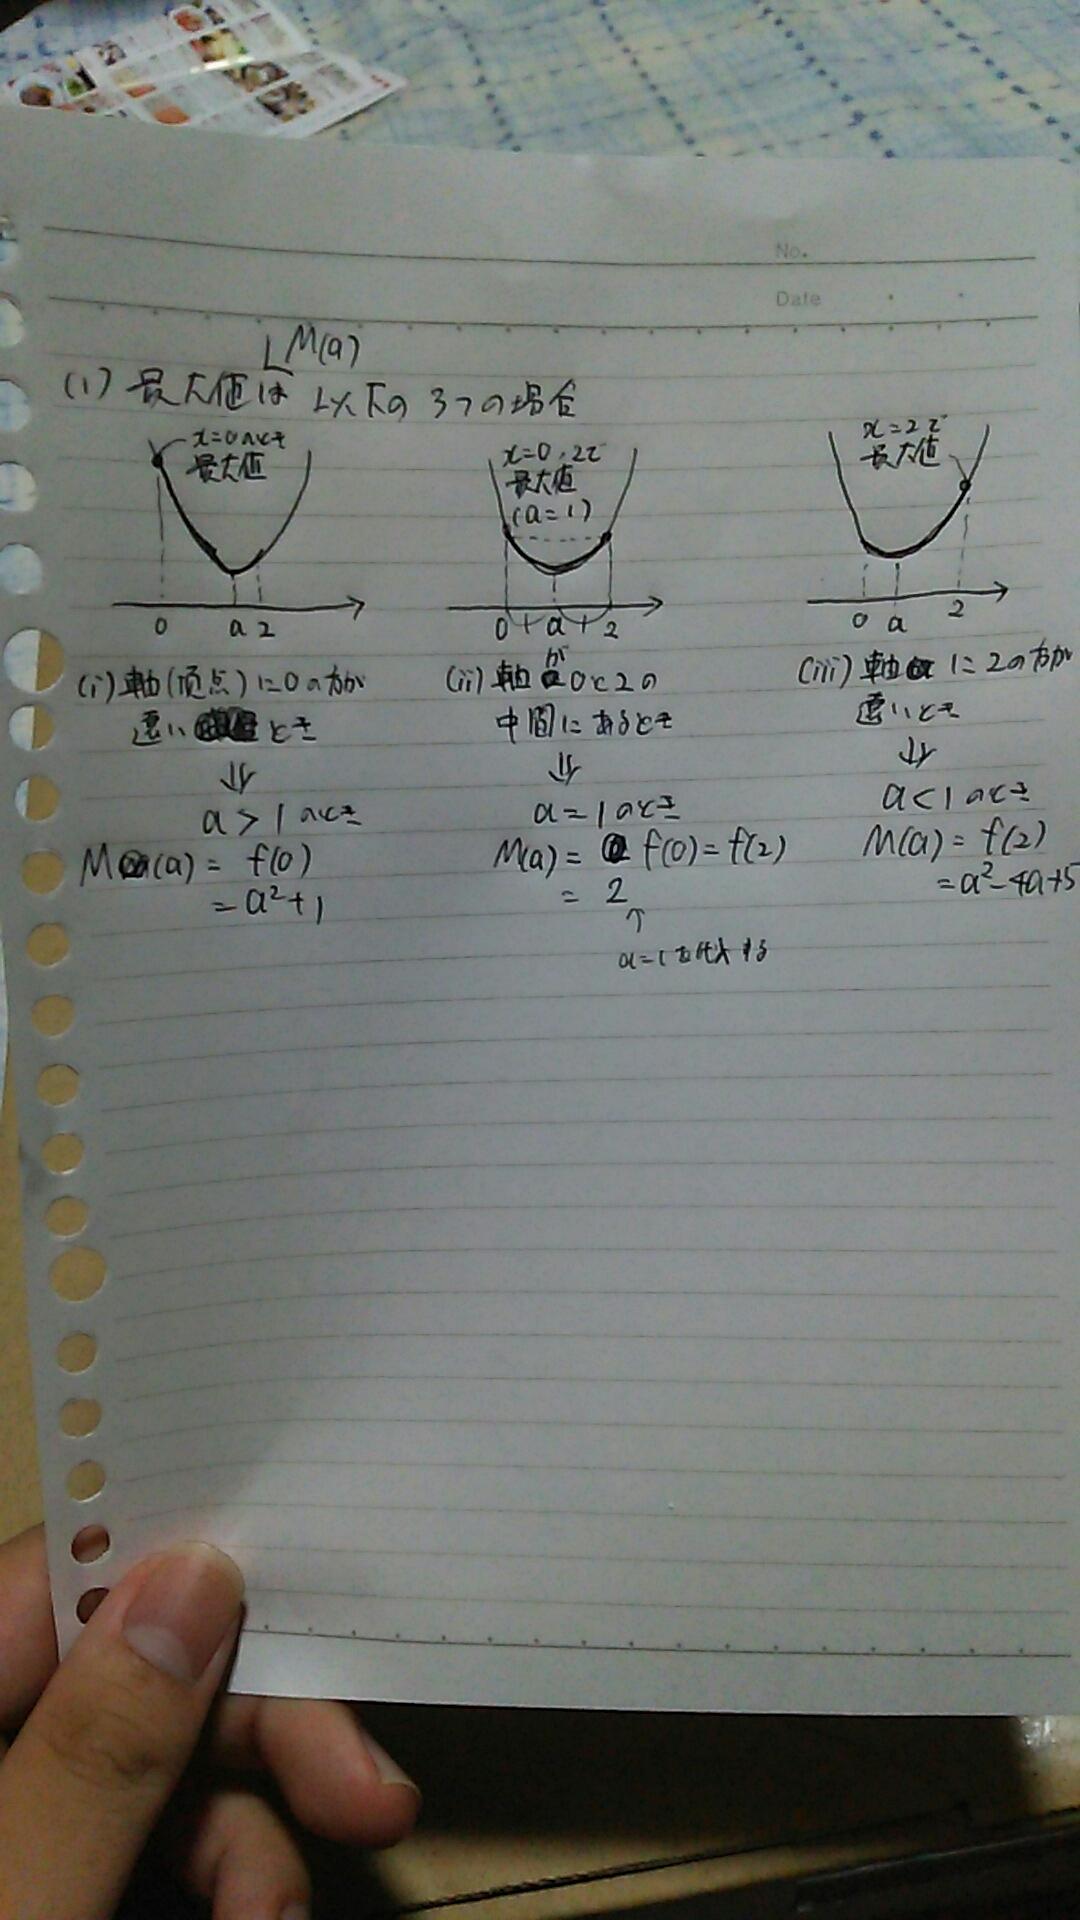 No.
Date
M(a)
(1) 最大値は 以下の 3つの場合
x=0のとき
最大値
0 a 2
(i) 軸(頂点)に0の方が
遠い とき
⇓
a > 1 のとき
M(a) = f(0)
= a²+1
x=0, 2で
最大値
(a=1)
0 a 2
(ii) 軸が0と2の
中間にあるとき
⇓
a = 1 のとき
M(a) = f(0) = f(2)
= 2
↑
a=1を代入する
x=2で
最大値
0 a 2
(iii) 軸に2の方が
遠いとき
⇓
a < 1 のとき
M(a) = f(2)
= a²-4a+5